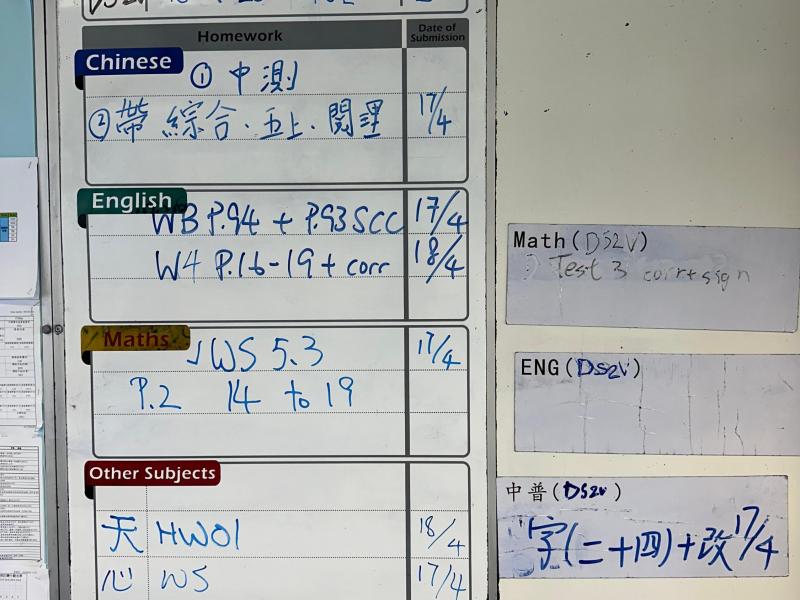 Homework
Date of
Submission
Chinese
① 中測
② 帶 綜合．五上．閱課 17/4
English
WB P.94 + P.93 SCC 17/4
W4 P.16-19 + corr 18/4
Maths
WS 5.3 17/4
P.2 14 to 19
Other Subjects
天 HW01 18/4
心 WS 17/4
Math(DS2V)
Test 3 corr+sign
ENG(DS2V)
中普(DS2V)
字(二十四)+改 17/4